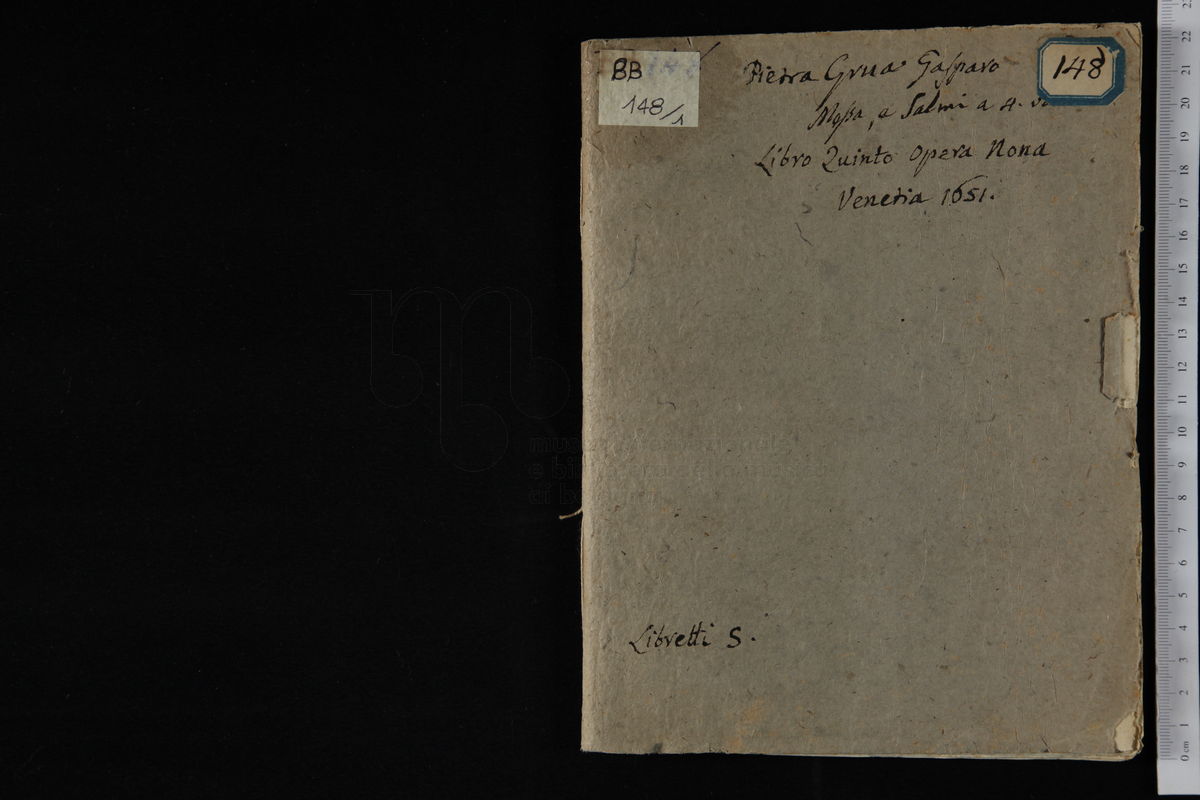 BB 148
148/1
148
Pietra Grua Gasparo
Messa, e Salmi a 4. vo
Libro Quinto Opera Nona
Venetia 1651.
Libretti 5.
museo
e bi
di bologna
22
21
20
19
18
17
16
15
14
13
12
11
10
9
8
7
6
5
4
3
2
1
0 cm